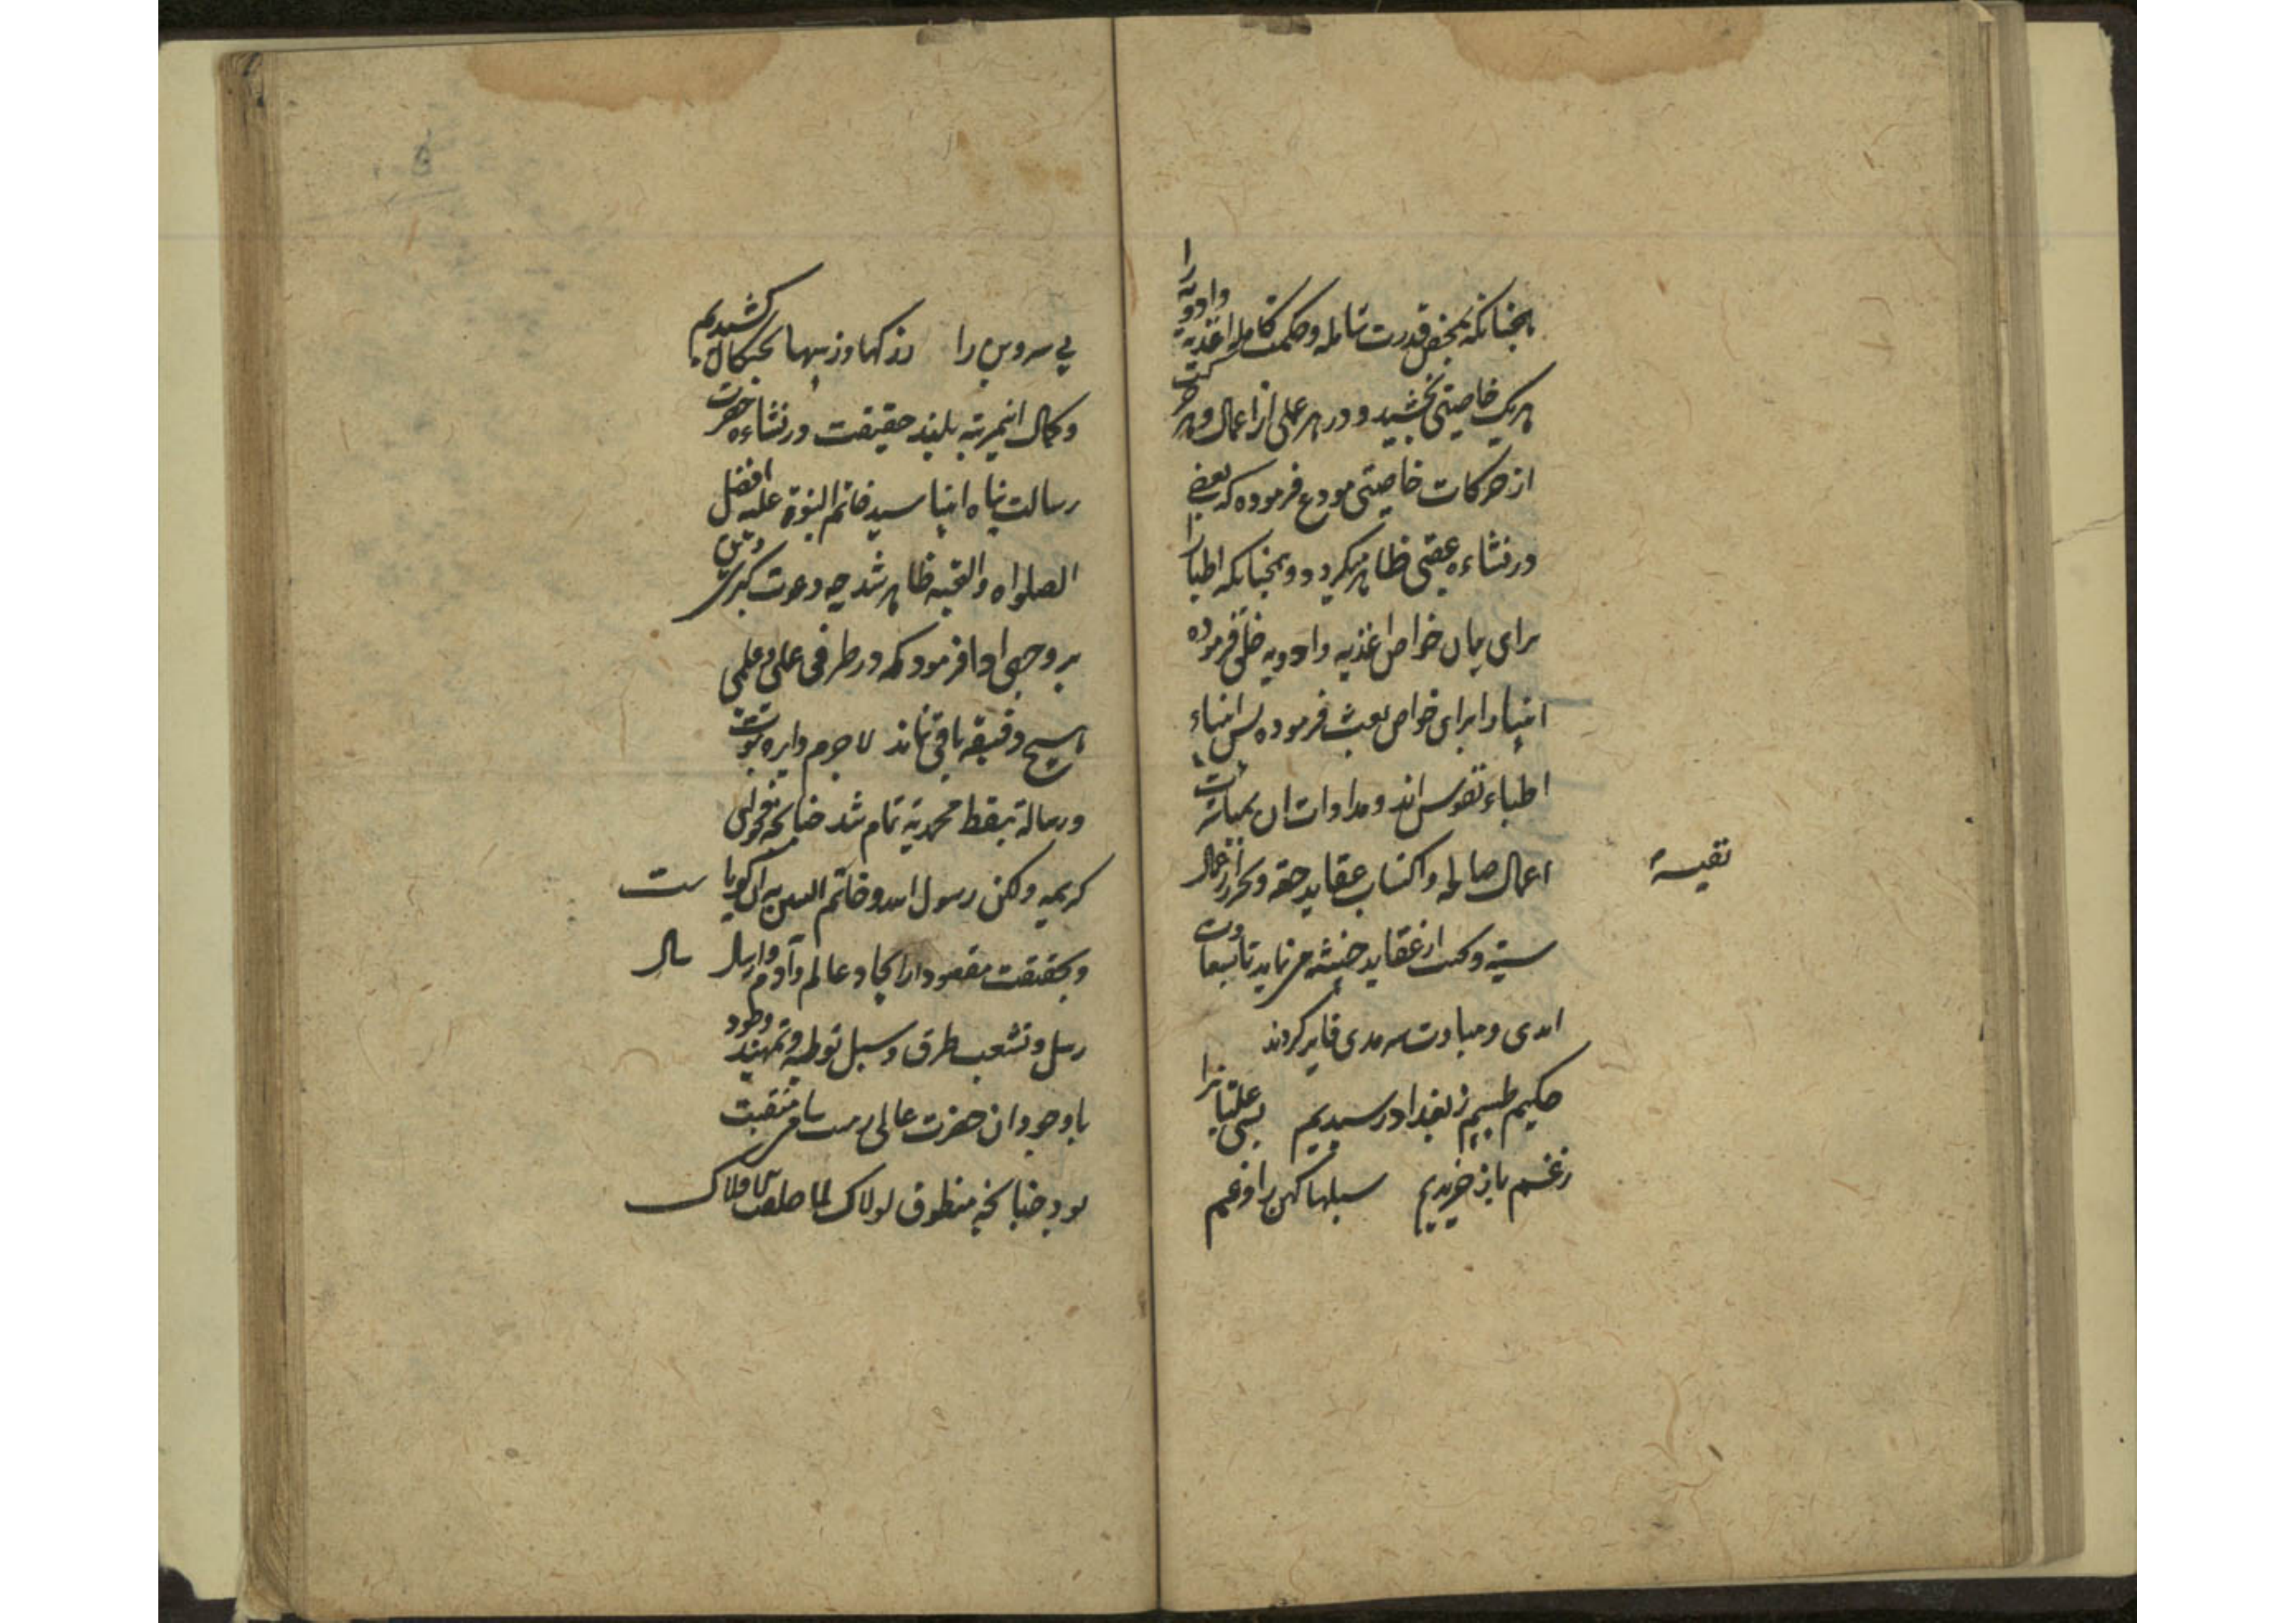 همچنانکه بمحض قدرت شامله و حکمت کامله اغذیه وادویه را
هریک خاصیتی بخشید و در هر عملی از اعمال و هر حرکت
از حرکات خاصیتی مودع فرموده که بعضی
در نشاءه عقبی ظاهر میکردد و همچنانکه اطبا را
برای بیان خواص اغذیه وادویه خلق فرموده
انبیا را برای خواص بعث فرموده پس انبیاء
اطباء نفوس اند و مداوات ان بمباشرت
اعمال صالحه واکتساب عقاید حقه و تحرز از اعمال
سیئه و از عقاید خبیثه
ابدی و سرمدی فایز کردند
حکیم طبیبیم ز بغداد رسیدیم بسی علتیانرا
زغم باز خریدیم سبلهاء کهن را وغم
بی سر و بن را ز رکها وز پیها بچنکال کشیدیم
وکمال اینمرتبه بلند حقیقت در نشاءه حضرت
رسالت پناه انبیا سید خاتم النبوة علیه افضل
الصلواه والتحیه ظاهر شد چه دعوت کبری
بر وجهی ادا فرمود که در طرفی عملی و علمی
هیچ دقیقه باقی نماند لاجرم دایره نبوت
ورسالة بنقطه محمدیه تمام شد چنانچه فحوای
کریمه ولکن رسول الله وخاتم النبیین به آن کویاست
وبحقیقت مقصود از ایجاد عالم وآدم وارسال
رسل وتشعب طرق وسبل توطیه وتمهید
با وجود ان حضرت عالی سامی منقبت
بود چنانچه منطوق لولاک لما خلقت الافلاک